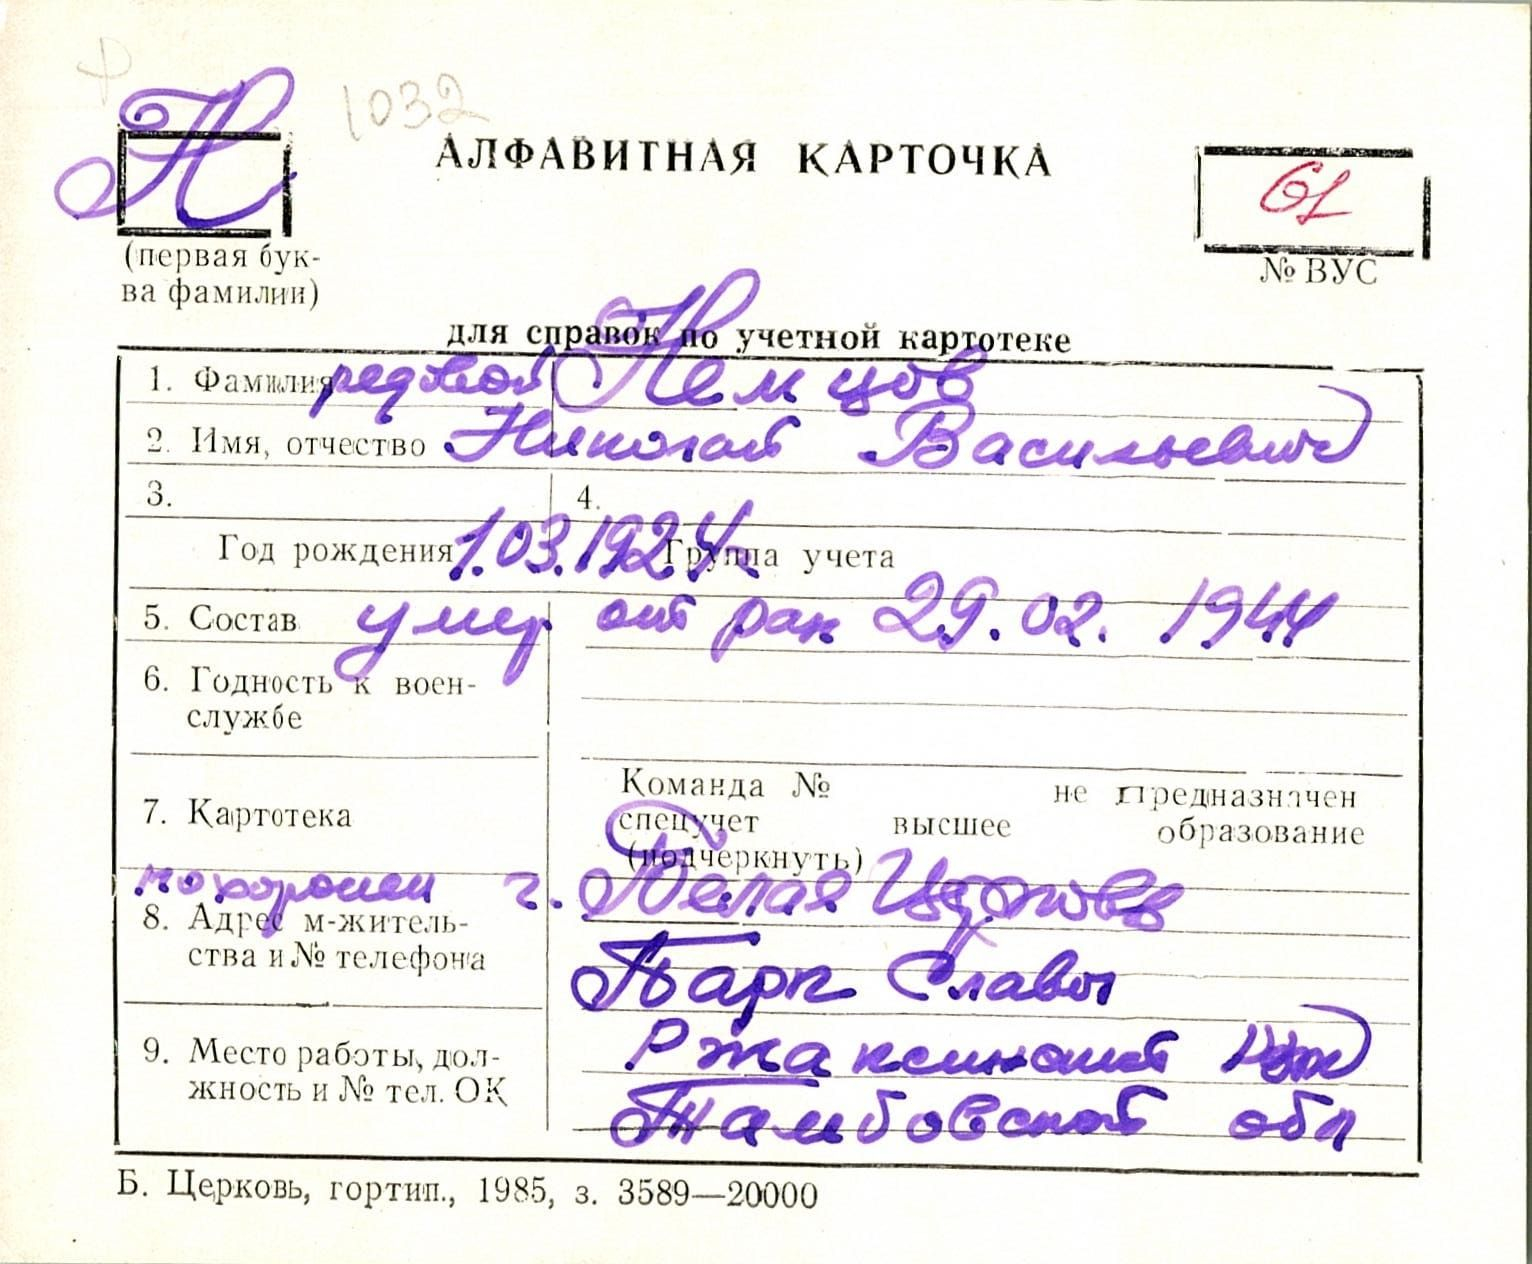 Н 1032
АЛФАВИТНАЯ КАРТОЧКА
61
(первая бук-
ва фамилии)
№ ВУС
для справок по учетной картотеке
1. Фамилия рядовой Немцов
2. Имя, отчество Николай Васильевич
3. 4.
Год рождения 1.03.1924 Группа учета
5. Состав умер от ран 29.02.1944
6. Годность к воен-
службе
Команда № не предназначен
7. Картотека спецучет высшее образование
(подчеркнуть)
похоронен г. Белая Церковь
8. Адрес м-житель-
ства и № телефона
Парк Славы
9. Место работы, дол-
жность и № тел. ОК
Ржаксинский
Тамбовской обл
Б. Церковь, гортип., 1985, з. 3589—20000